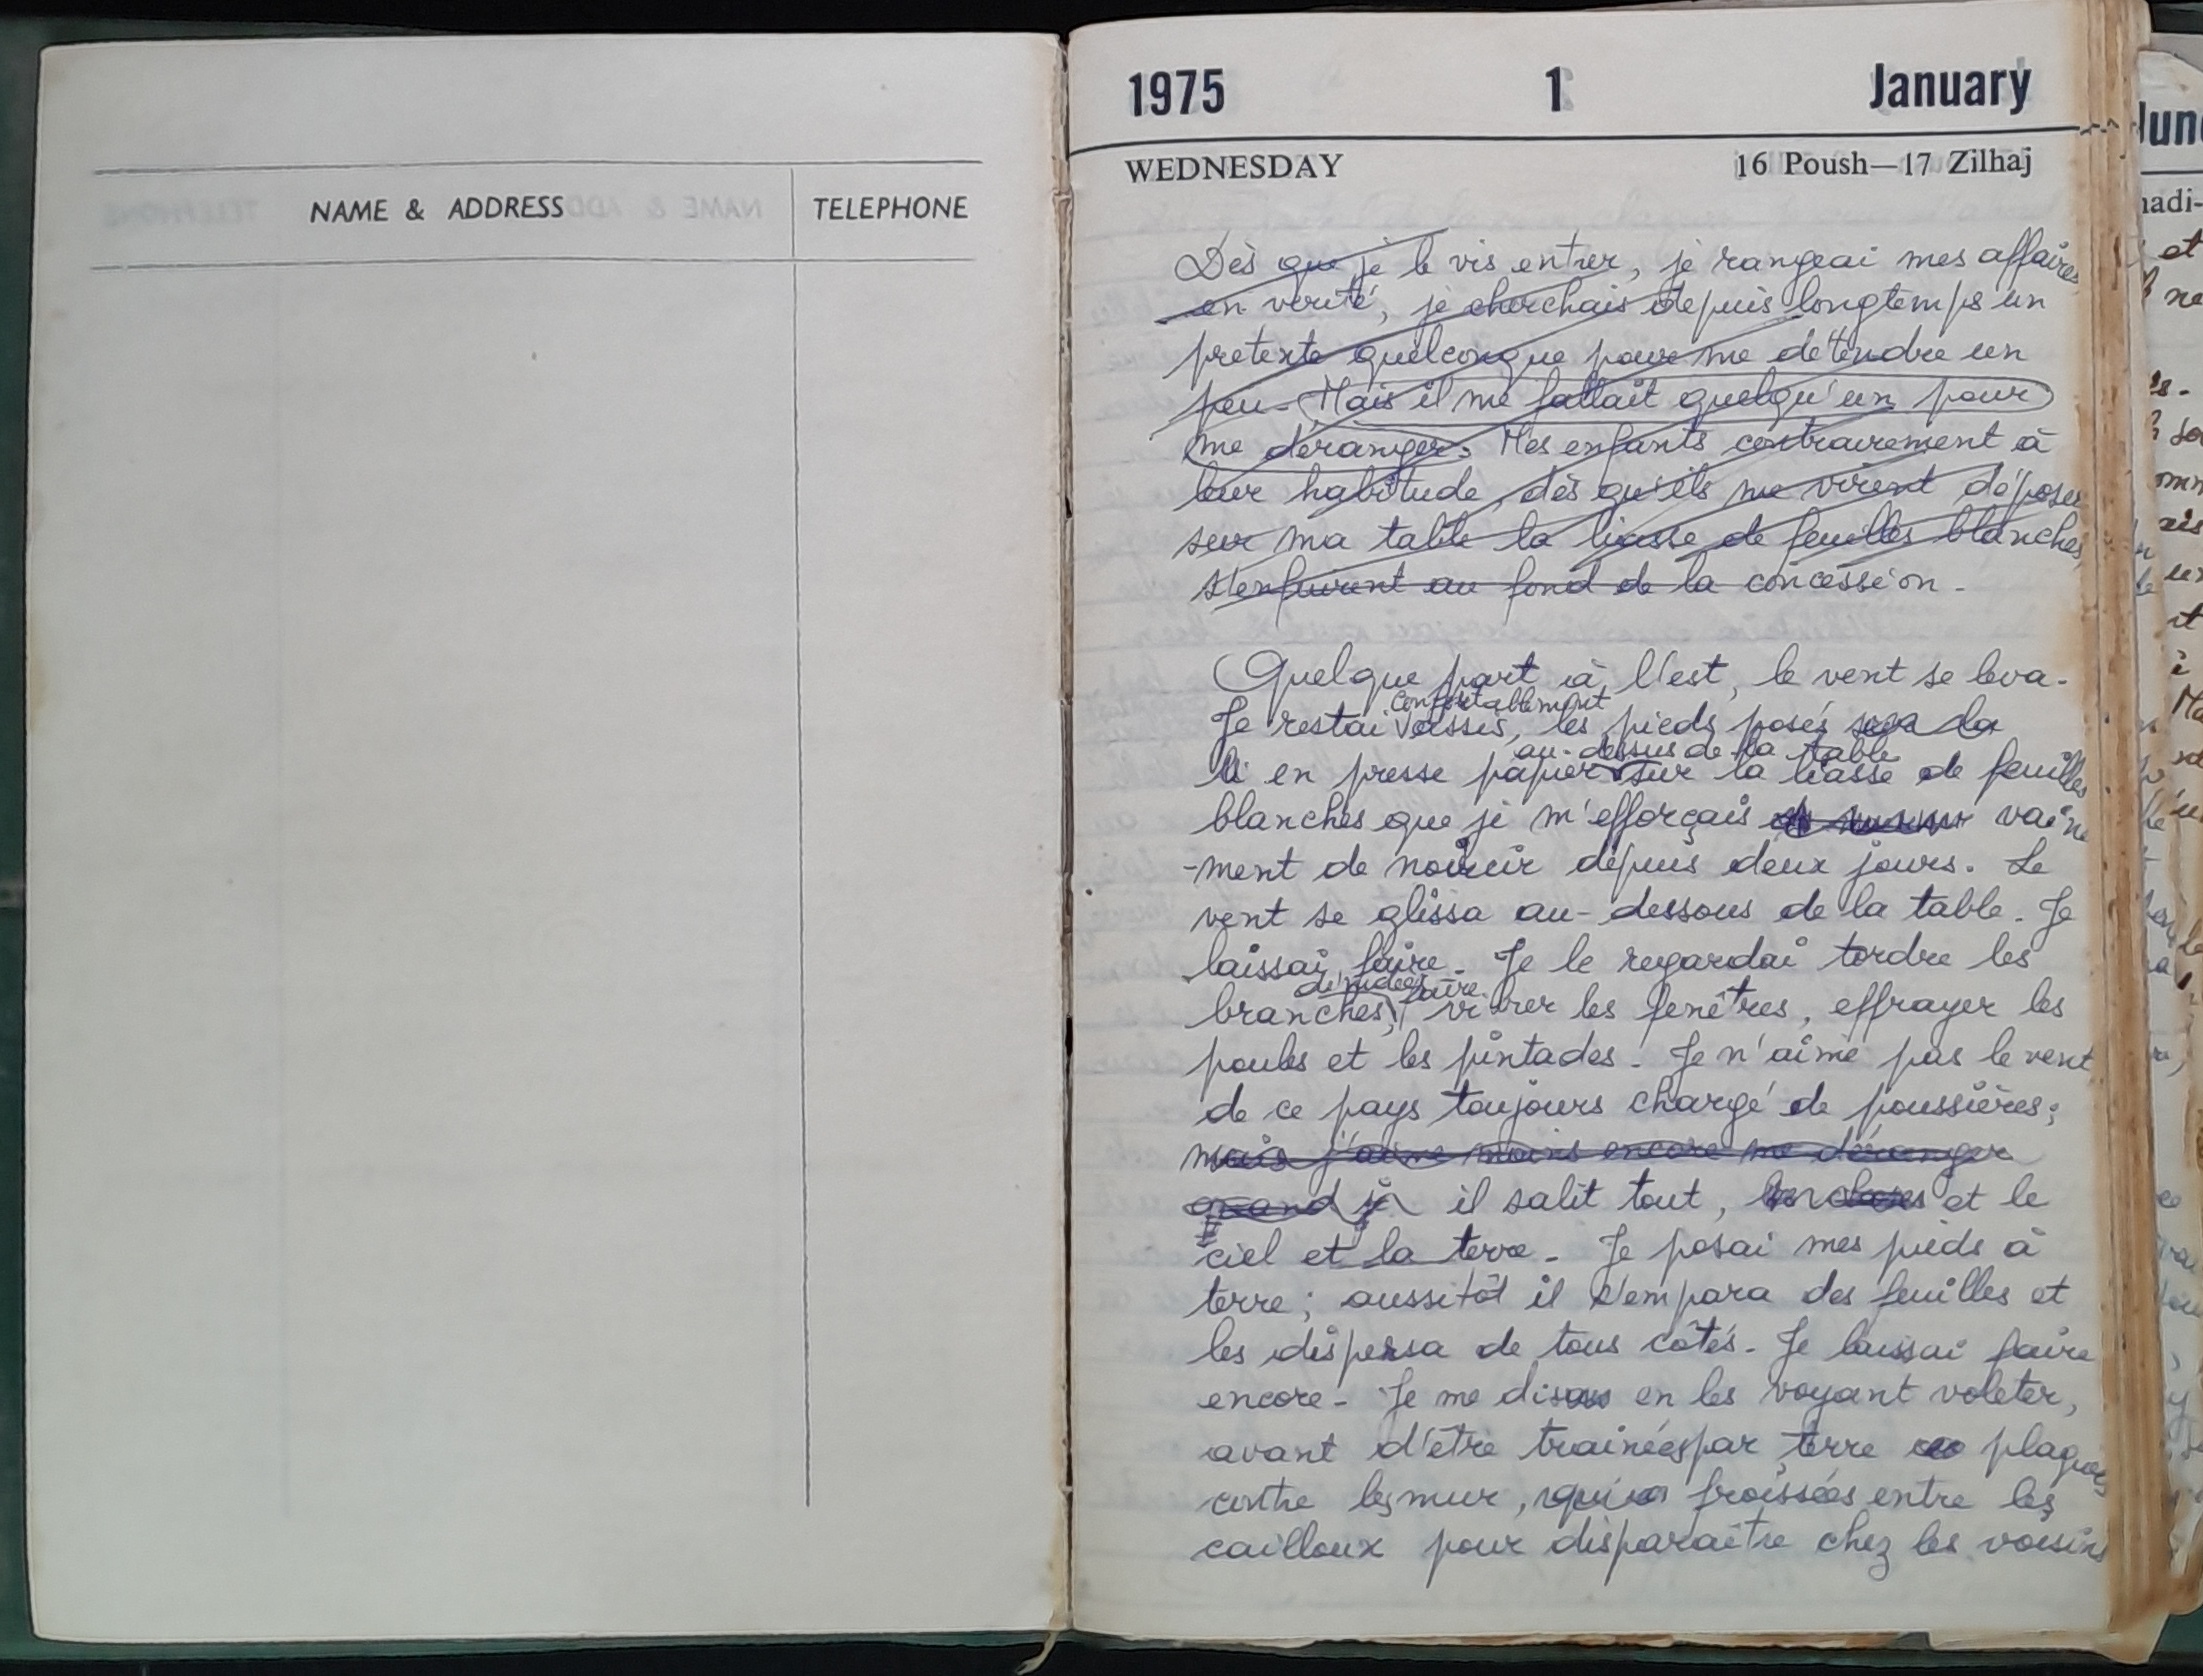 NAME & ADDRESS TELEPHONE
1975 1 January
WEDNESDAY 16 Poush—17 Zilhaj
Dès que je le vis entrer, je rangeai mes affaires
en vérité, je cherchais depuis longtemps un
pretexte quelconque pour me détendre un
peu - Mais il me fallait quelqu'un pour
me déranger. Mes enfants contrairement à
leur habitude, dès qu'ils me virent déposer
sur ma table la liasse de feuilles blanches,
s'enfuirent au fond de la concession -
Quelque part à l'est, le vent se leva -
confortablement
Je restai assis, les pieds posés sur la
au-dessus de la table
en presse papier sur la liasse de feuilles
blanches que je m'efforçais vaine
-ment de noircir depuis deux jours. Le
vent se glissa au-dessous de la table - Je
laissai faire - Je le regardai tordre les
dénudées faire
branches, vibrer les fenêtres, effrayer les
poules et les pintades - Je n'aime pas le vent
de ce pays toujours chargé de poussières;
mais j'aime moins encore me déranger
quand je il salit tout, et le
ciel et la terre - Je posai mes pieds à
terre; aussitôt il s'empara des feuilles et
les dispersa de tous côtés - Je laissai faire
encore - Je me disais en les voyant voleter,
avant d'être trainées par terre plaquées
contre les mur, froissées entre les
cailloux pour disparaître chez les voisins